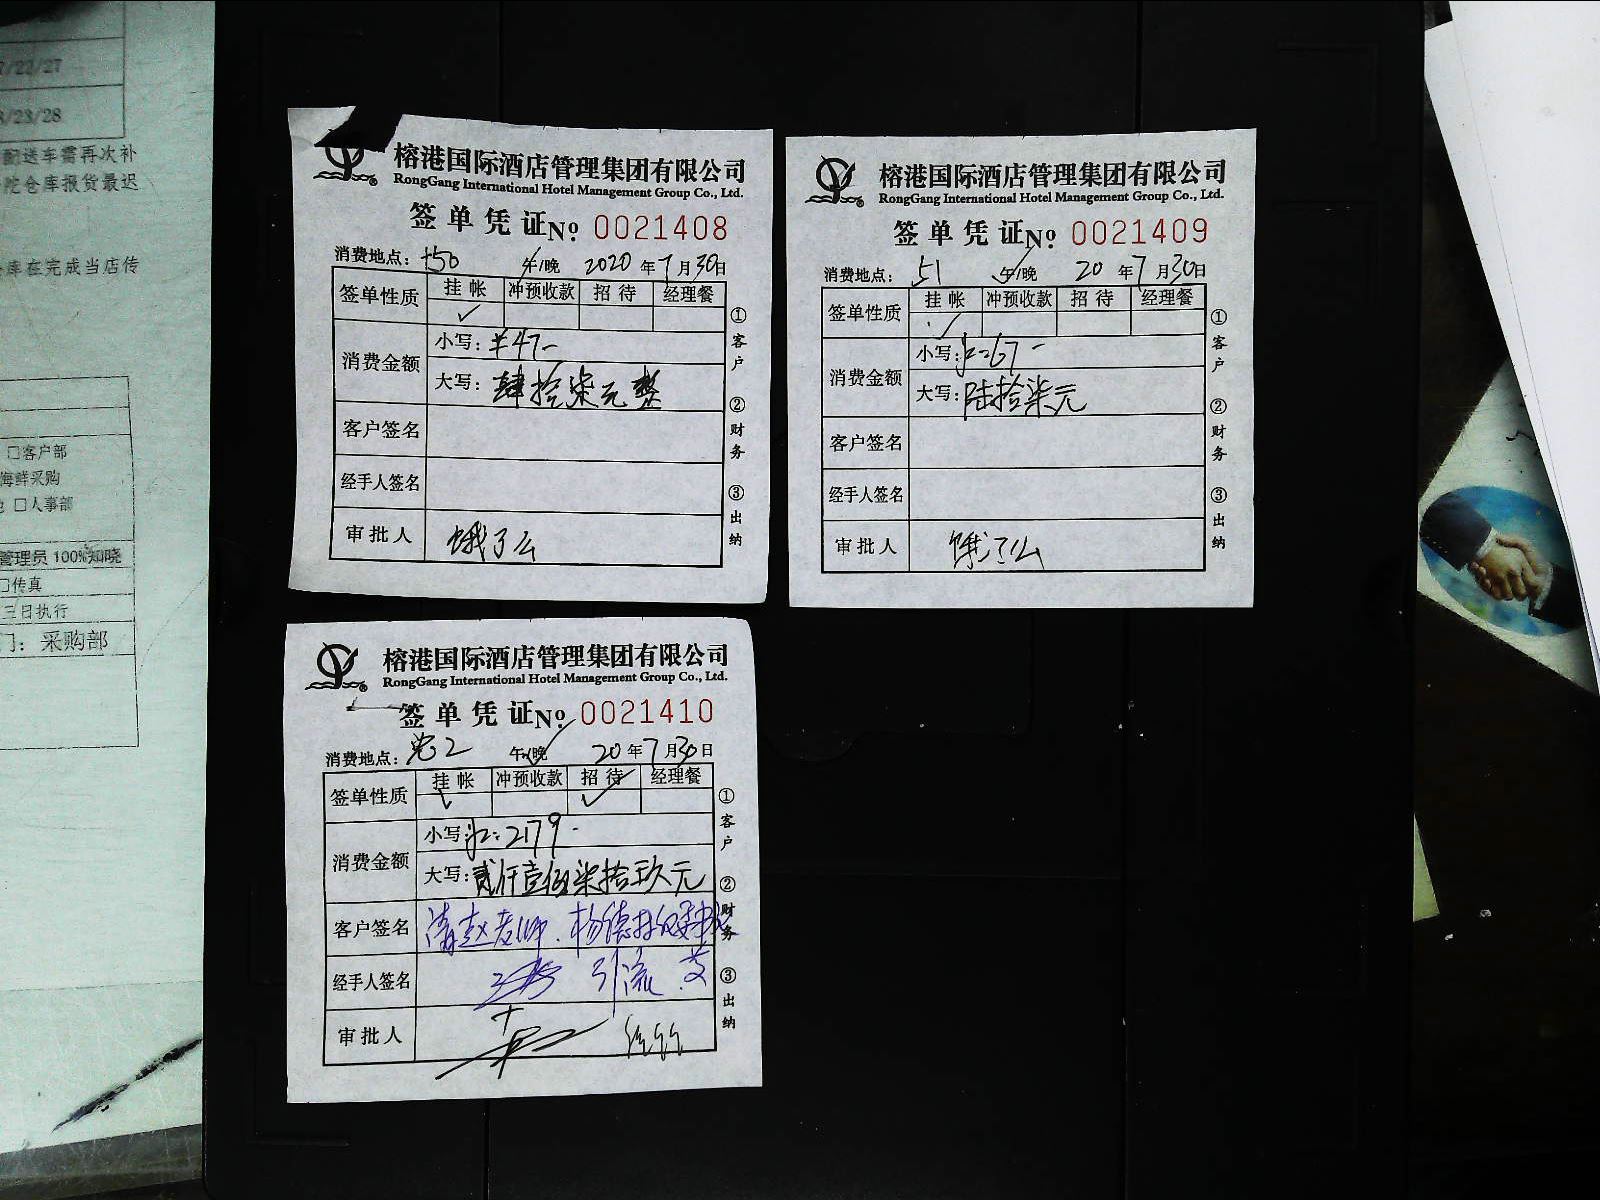 7/22/27
8/23/28
配送车需再次补
院仓库报货最迟
库在完成当店传
□客户部
海鲜采购
□人事部
管理员 100%知晓
□传真
三日执行
门：采购部
榕港国际酒店管理集团有限公司
RongGang International Hotel Management Group Co., Ltd.
签单凭证 No. 0021408
消费地点： 午/晚 2020 年 7 月 30 日
签单性质 挂帐 冲预收款 招待 经理餐
✓
消费金额 小写：¥47-
大写：肆拾柒元整
客户签名
经手人签名
审批人 饿了么
①客户 ②财务 ③出纳
榕港国际酒店管理集团有限公司
RongGang International Hotel Management Group Co., Ltd.
签单凭证 No. 0021409
消费地点： 51 午/晚 20 年 7 月 30 日
签单性质 挂帐 冲预收款 招待 经理餐
✓
消费金额 小写： 67-
大写：陆拾柒元
客户签名
经手人签名
审批人 饿了么
①客户 ②财务 ③出纳
榕港国际酒店管理集团有限公司
RongGang International Hotel Management Group Co., Ltd.
签单凭证 No. 0021410
消费地点： 午/晚 20 年 7 月 30 日
签单性质 挂帐 冲预收款 招待 经理餐
✓ ✓
消费金额 小写： 2179-
大写：贰仟壹佰柒拾玖元
客户签名 赵老师
经手人签名 引流
审批人
①客户 ②财务 ③出纳